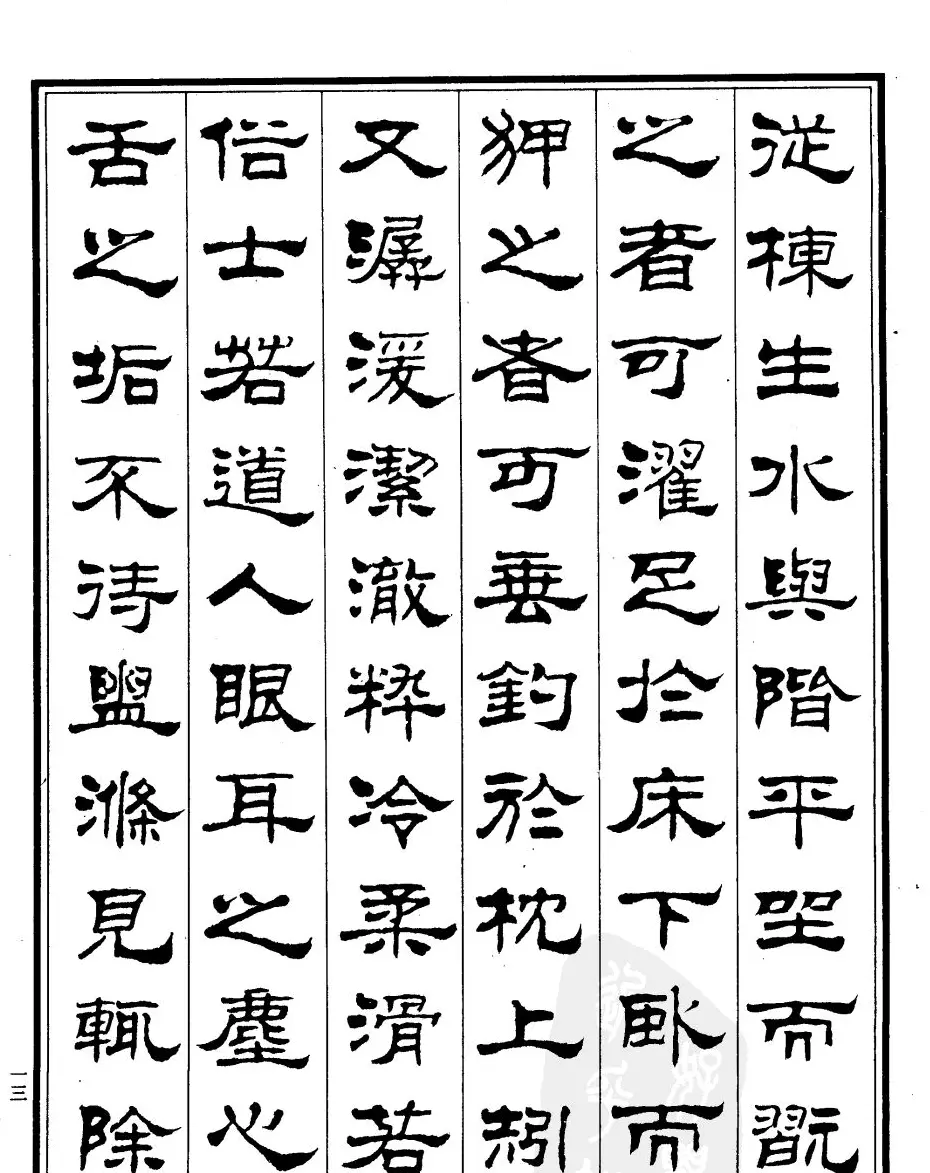 從棟生水與階平坐而翫
之者可濯足於床下臥而
狎之者可垂釣於枕上矧
又潺湲潔澈粹冷柔滑若
俗士若道人眼耳之塵心
舌之垢不待盥滌見輒除
一三